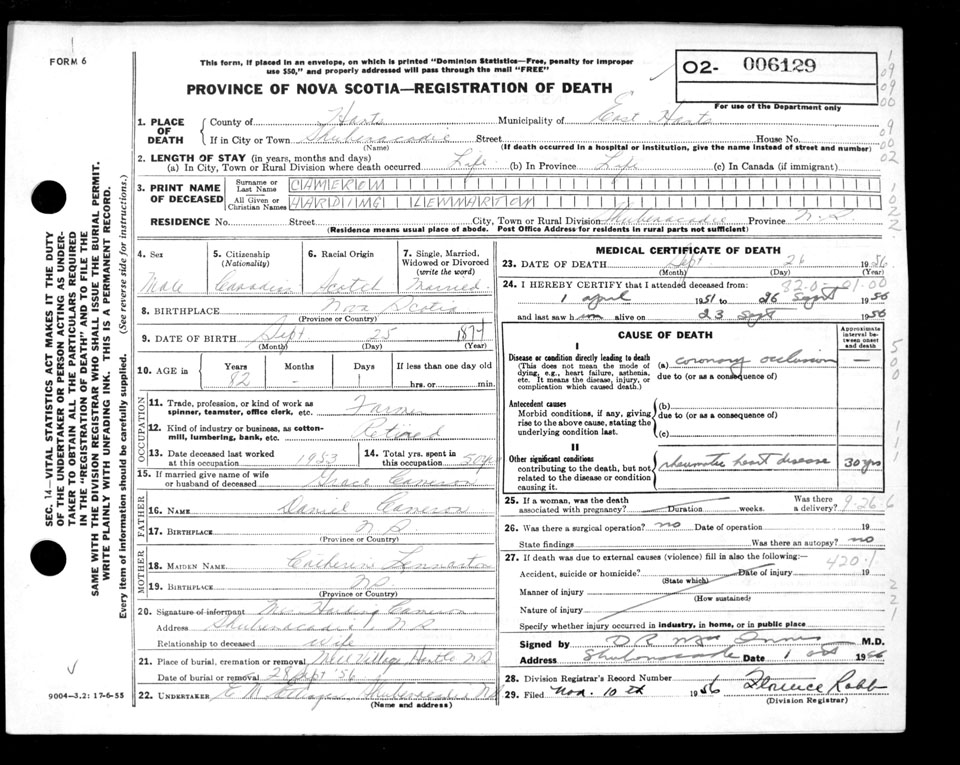 FORM 6
1
This form, if placed in an envelope, on which is printed "Dominion Statistics—Free, penalty for improper
use $50," and properly addressed will pass through the mail "FREE"
O2- 006129
PROVINCE OF NOVA SCOTIA—REGISTRATION OF DEATH
For use of the Department only
1. PLACE OF DEATH
County of Hants Municipality of East Hants
If in City or Town Shubenacadie Street House No.
(Name) (If death occurred in a hospital or institution, give the name instead of street and number)
2. LENGTH OF STAY (in years, months and days)
(a) In City, Town or Rural Division where death occurred Life (b) In Province Life (c) In Canada (if immigrant)
3. PRINT NAME OF DECEASED
Surname or Last Name CAMERON
All Given or Christian Names HARDING LENNARTON
RESIDENCE No. Street City, Town or Rural Division Shubenacadie Province N.S.
(Residence means usual place of abode. Post Office Address for residents in rural parts not sufficient)
4. Sex
Male
5. Citizenship (Nationality)
Canadian
6. Racial Origin
Scotch
7. Single, Married, Widowed or Divorced (write the word)
Married
8. BIRTHPLACE Nova Scotia
(Province or Country)
9. DATE OF BIRTH Sept 25 1874
(Month) (Day) (Year)
10. AGE in Years Months Days If less than one day old
82 - 1 hrs. or min.
OCCUPATION
11. Trade, profession, or kind of work as spinner, teamster, office clerk, etc. Farmer
12. Kind of industry or business, as cotton-mill, lumbering, bank, etc. Retired
13. Date deceased last worked at this occupation 1953
14. Total yrs. spent in this occupation 50 yrs
15. If married give name of wife or husband of deceased Grace Cameron
FATHER
16. NAME Daniel Cameron
17. BIRTHPLACE N.S.
(Province or Country)
MOTHER
18. MAIDEN NAME Catherine Lennarton
19. BIRTHPLACE N.S.
(Province or Country)
20. Signature of informant Mrs Harding Cameron
Address Shubenacadie, N.S
Relationship to deceased wife
21. Place of burial, cremation or removal Village N.S
Date of burial or removal 28 Sept '56
22. UNDERTAKER Shubenacadie N.S
(Name and address)
MEDICAL CERTIFICATE OF DEATH
23. DATE OF DEATH Sept 26 1956
(Month) (Day) (Year)
24. I HEREBY CERTIFY that I attended deceased from: 82-05-01-00
1 april 1951 to 26 Sept 1956
and last saw him alive on 23 Sept 1956
CAUSE OF DEATH
Approximate interval between onset and death
I
Disease or condition directly leading to death
(This does not mean the mode of dying, e.g., heart failure, asthenia, etc. It means the disease, injury, or complication which caused death.)
(a) coronary occlusion —
due to (or as a consequence of)
Antecedent causes
Morbid conditions, if any, giving rise to the above cause, stating the underlying condition last.
(b)
due to (or as a consequence of)
(c)
II
Other significant conditions
contributing to the death, but not related to the disease or condition causing it.
rheumatic heart disease 30 yrs
25. If a woman, was the death associated with pregnancy? Duration weeks. Was there a delivery?
9-26-6
26. Was there a surgical operation? no Date of operation 19
State findings Was there an autopsy? no
27. If death was due to external causes (violence) fill in also the following:—
420.1
Accident, suicide or homicide? Date of injury 19
(State which)
Manner of injury
(How sustained)
Nature of injury
Specify whether injury occurred in industry, in home, or in public place
Signed by D R Mac Innis M.D.
Address Shubenacadie Date 1 Oct 1956
28. Division Registrar's Record Number
29. Filed Nov. 10th 1956 Florence Robb
(Division Registrar)
9004—3.2: 17-6-55
SEC. 14—VITAL STATISTICS ACT MAKES IT THE DUTY
OF THE UNDERTAKER OR PERSON ACTING AS UNDER-
TAKER TO OBTAIN ALL THE PARTICULARS REQUIRED
IN THE "REGISTRATION OF DEATH" AND TO FILE THE
SAME WITH THE DIVISION REGISTRAR WHO SHALL ISSUE THE BURIAL PERMIT.
WRITE PLAINLY WITH UNFADING INK. THIS IS A PERMANENT RECORD.
Every item of information should be carefully supplied. (See reverse side for instructions.)